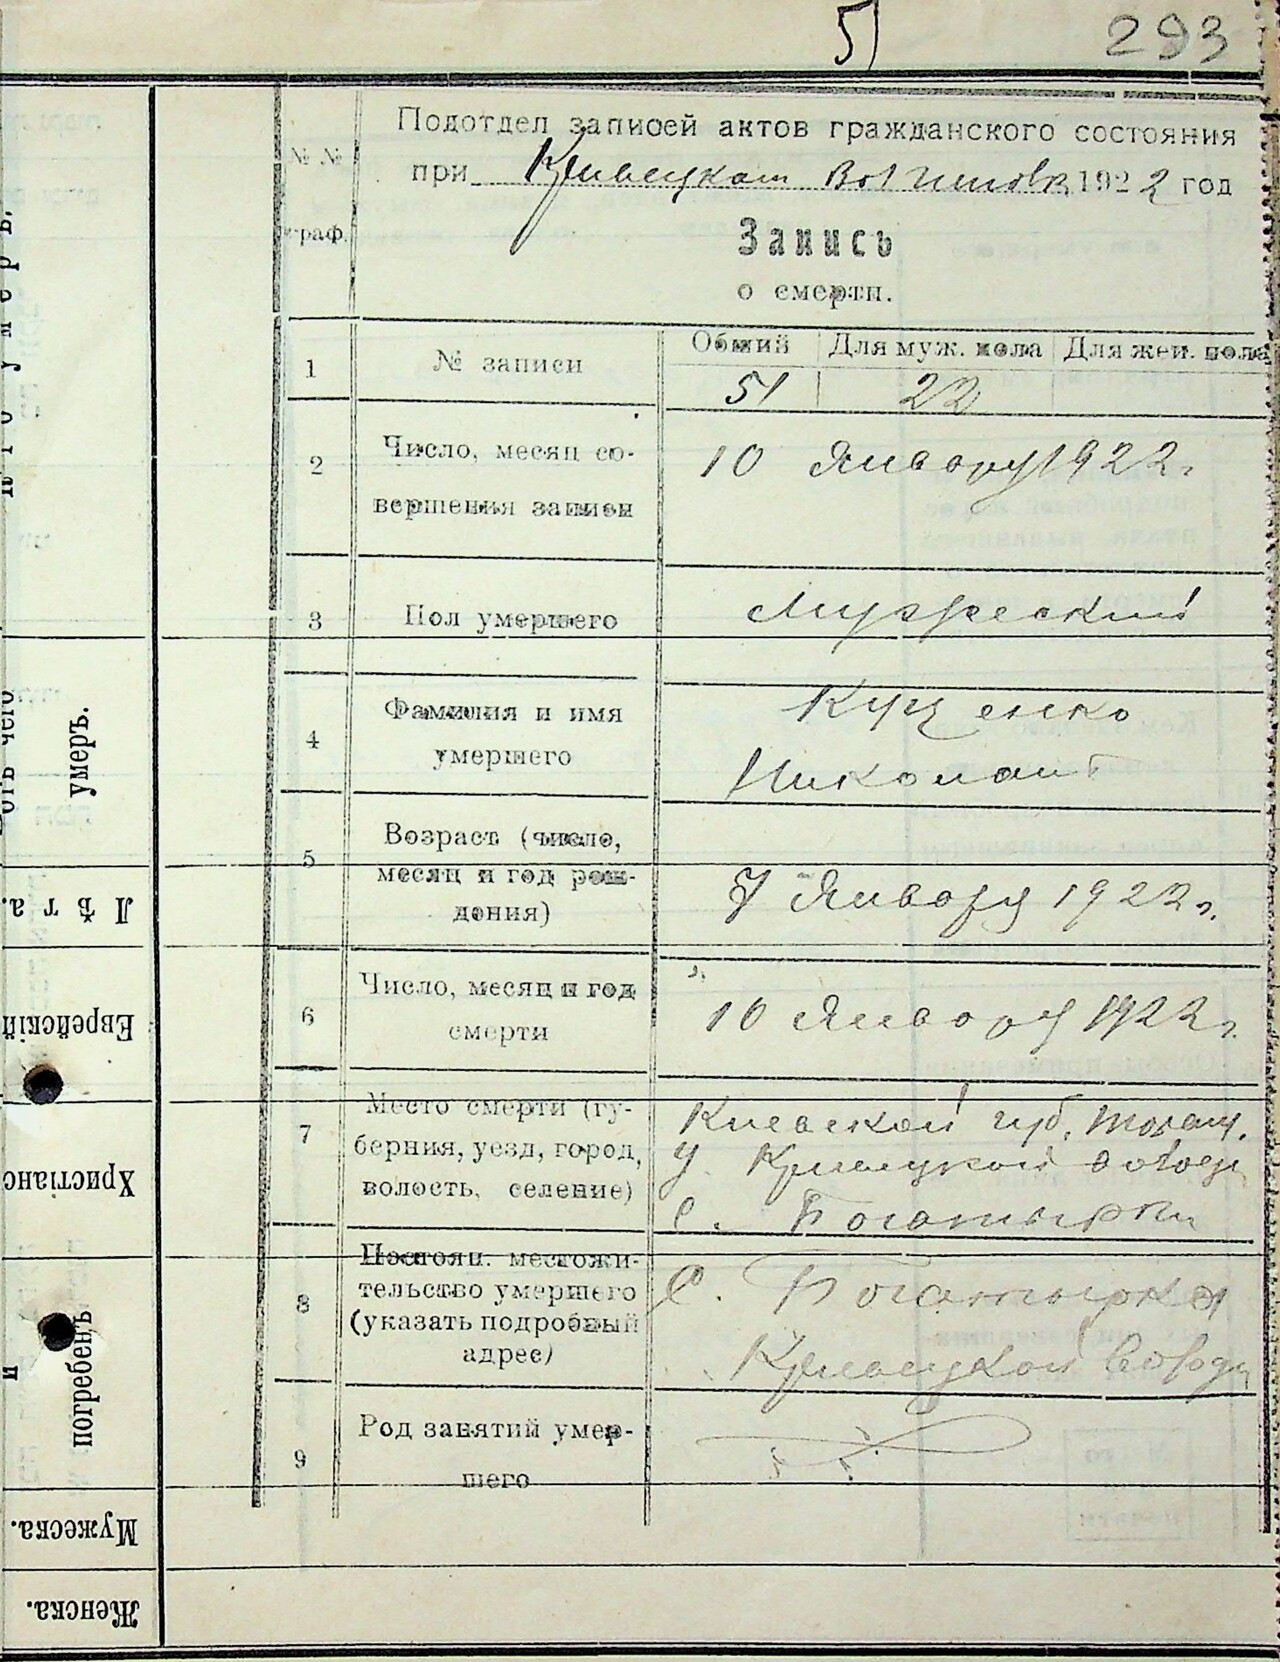 51
293
Подотдел записей актов гражданского состояния
при Кривецком Вол исполк 1922 год
Запись
о смерти.
№ №
граф.
1
№ записи
Общий
Для муж. пола
Для жен. пола
51
22
2
Число, месяц со-
вершения записи
10 Январу 1922 г.
3
Пол умершего
Мужеский
4
Фамилия и имя
умершего
Куценко
Николай
5
Возраст (число,
месяц и год рож-
дения)
7 Январу 1922 г.
6
Число, месяц и год
смерти
10 Январу 1922 г.
7
Место смерти (гу-
берния, уезд, город,
волость, селение)
Киевской губ.
у. Кривецкой
С. Богатырки
8
Постоян. местожи-
тельство умершего
(указать подробный
адрес)
С. Богатырка
Кривецкой
9
Род занятий умер-
шего
отъ чего
умеръ.
Лѣта.
Еврейскій
Христіанс
и
погребенъ
Мужеска.
Женска.